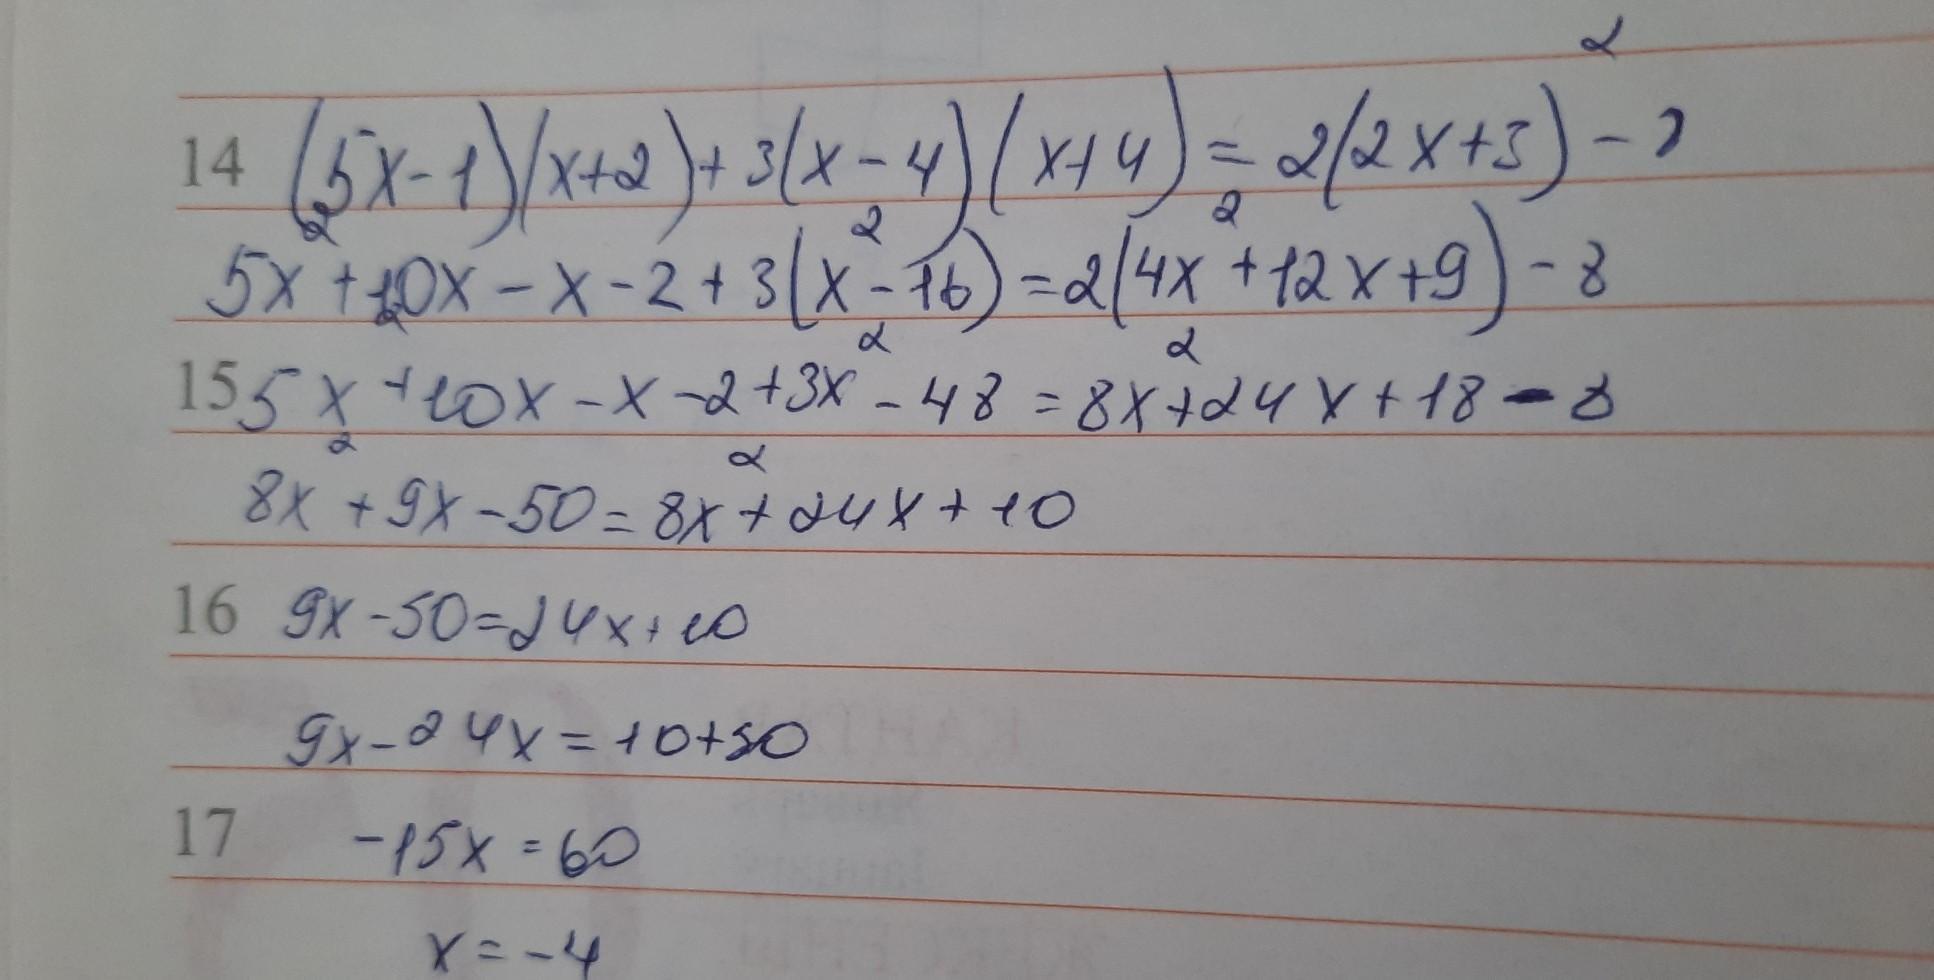 14 (5x-1)(x+2)+3(x-4)(x+4)=2(2x+3)²-8
5x²+10x-x-2+3(x²-16)=2(4x²+12x+9)-8
15 5x²+10x-x-2+3x²-48=8x²+24x+18-8
8x²+9x-50=8x²+24x+10
16 9x-50=24x+10
9x-24x=10+50
17 -15x=60
x=-4